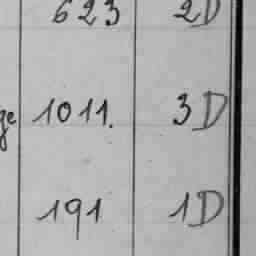 623 2D
ge 1011. 3D
191 1D